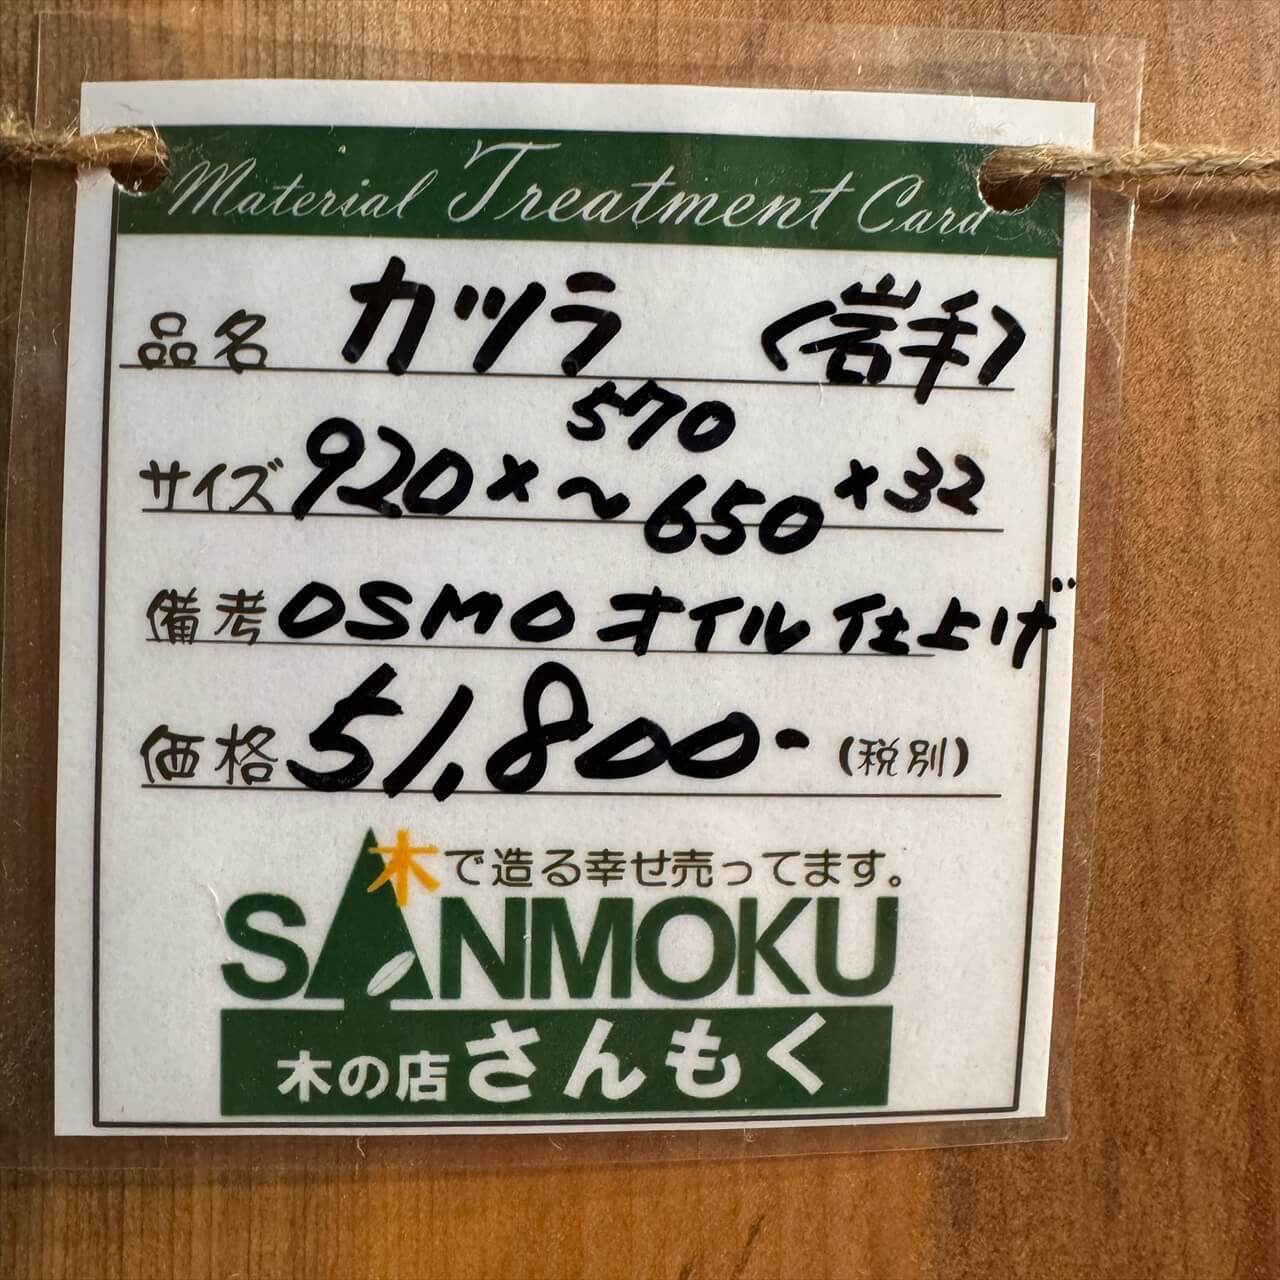 Material Treatment Card
品名 カツラ (岩手)
サイズ 920×570～650×32
備考 OSMOオイル仕上げ
価格 51,800- (税別)
木で造る幸せ売ってます。
SANMOKU
木の店さんもく